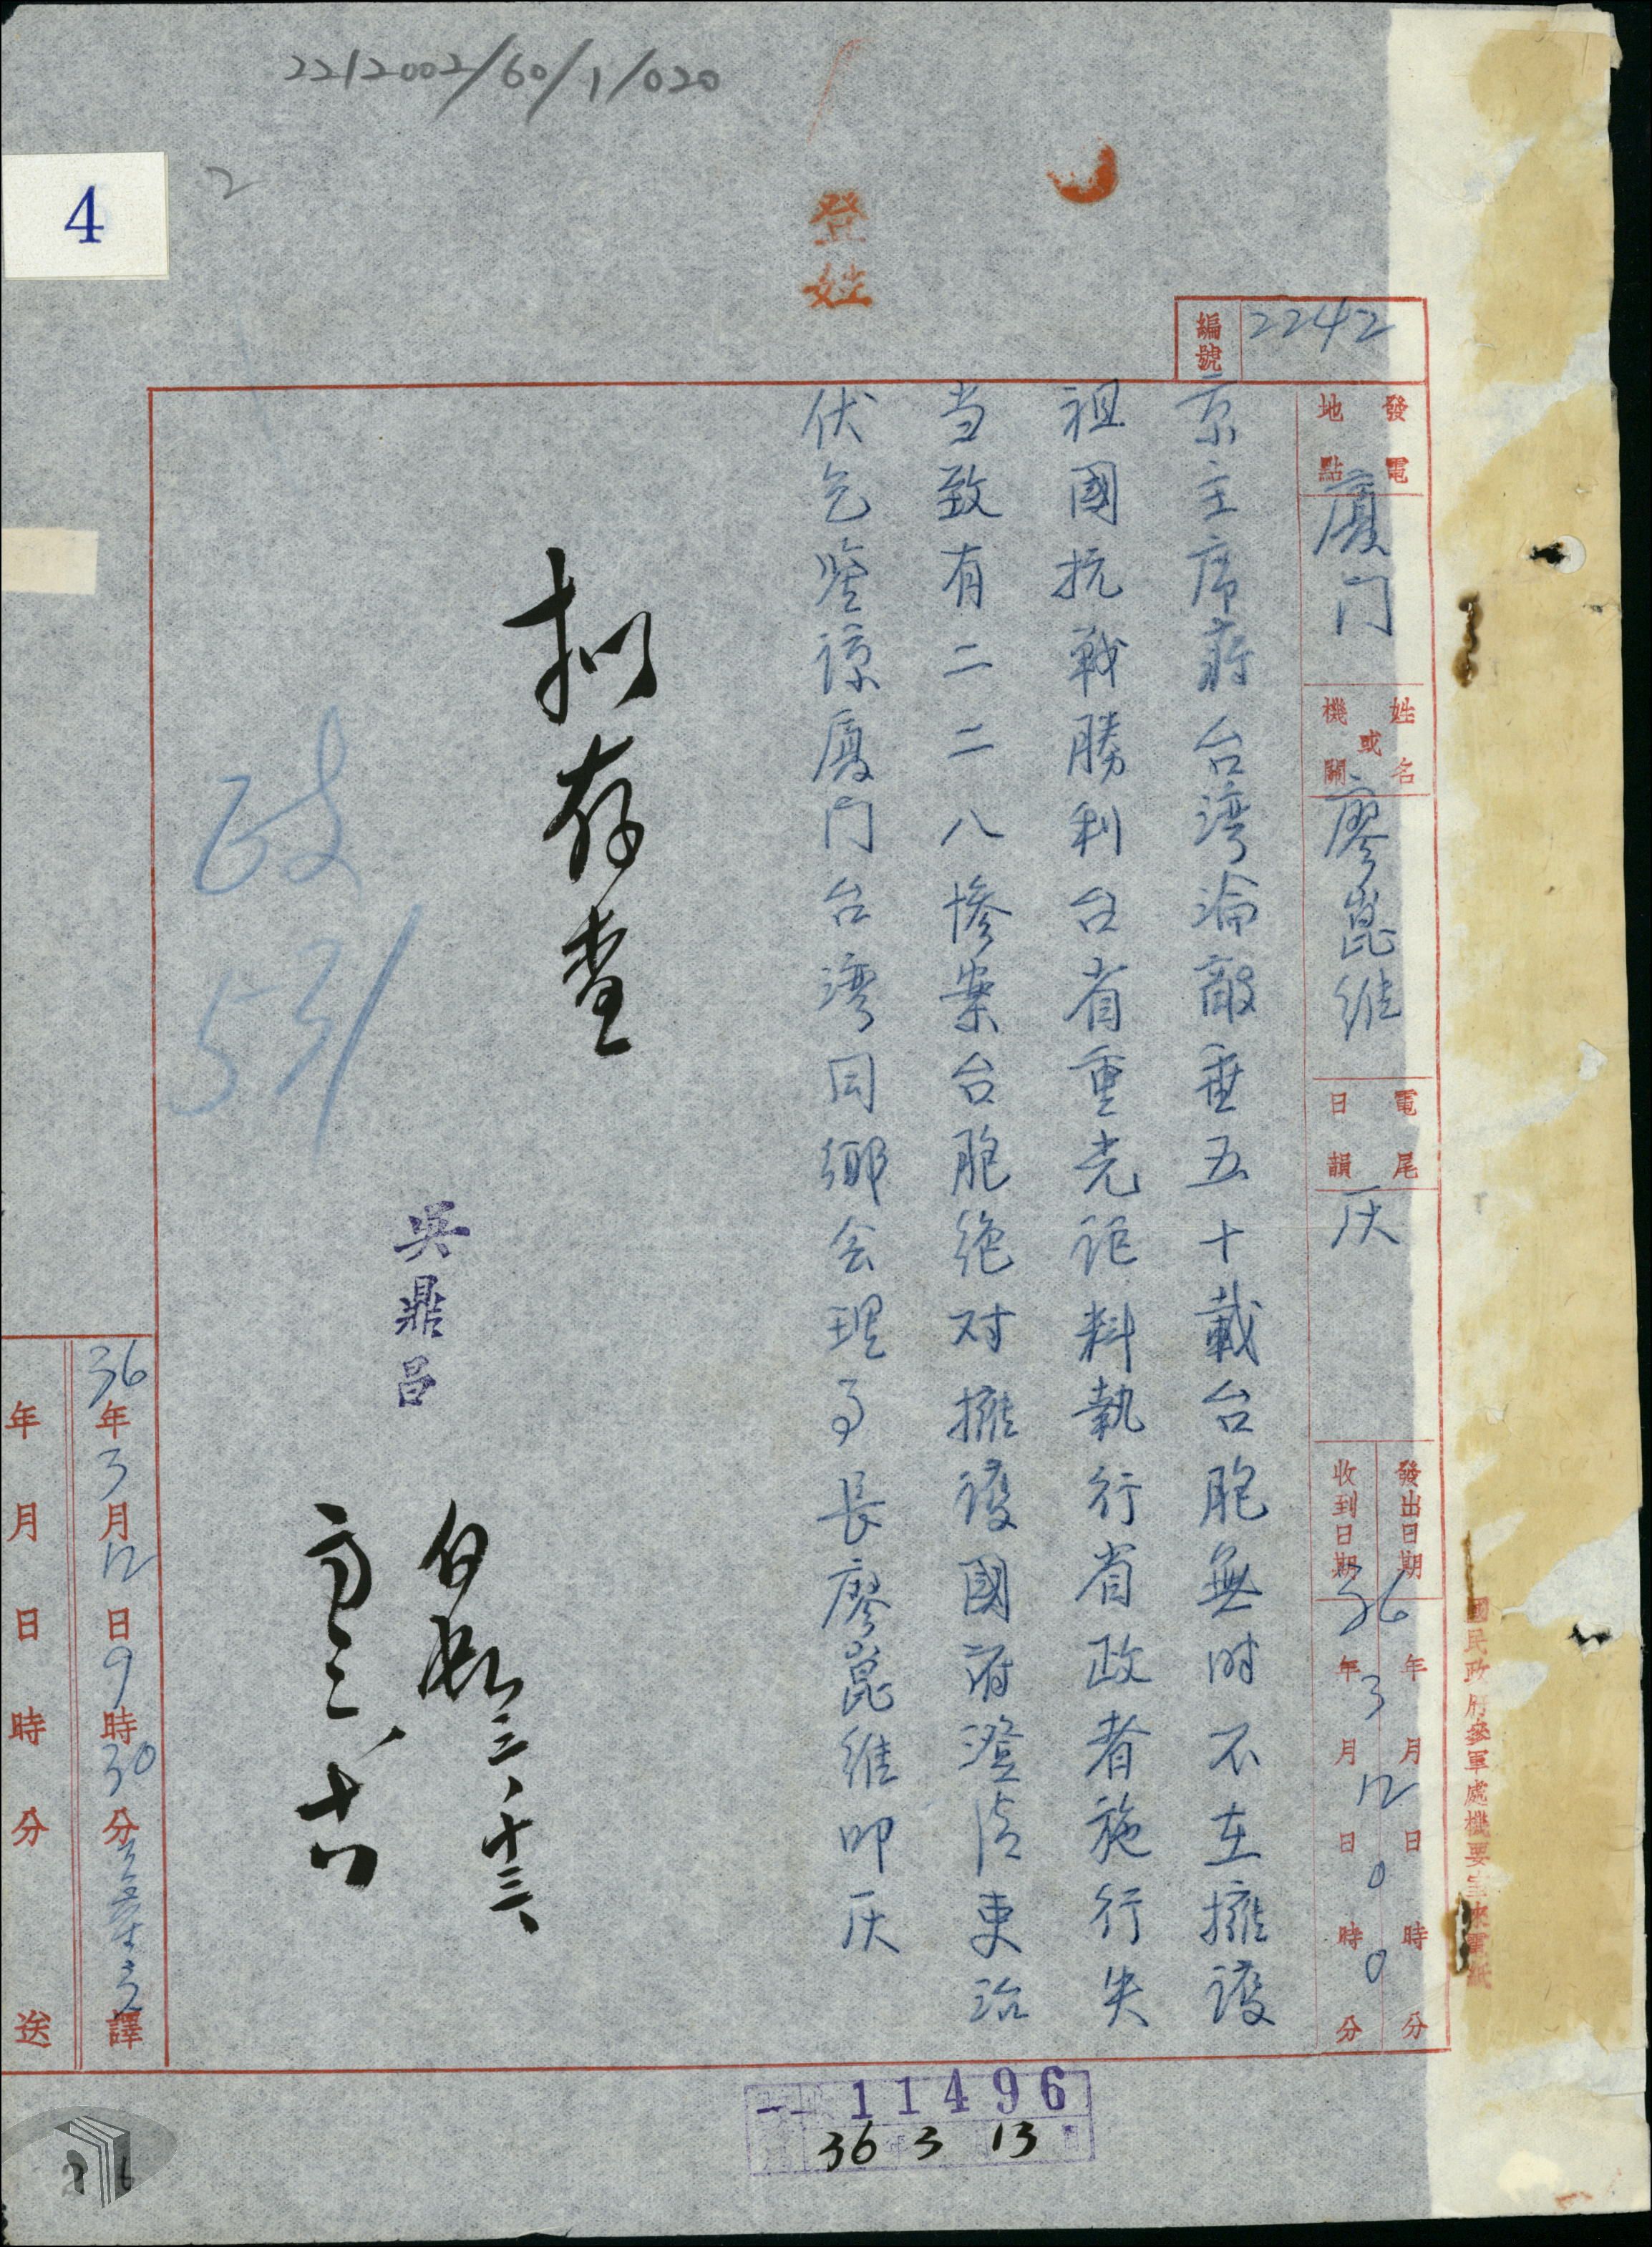 2212002/60/1/020
2
4
登
編號 2242
發電地點 廈门
姓名或機關 廖崑維
電尾日韻 灰
發出日期 年 月 日 時 分
收到日期 36年3月12日0時0分
國民政府參軍處機要室來電紙
京主席蔣台湾淪敵垂五十載台胞無时不在擁護
祖國抗戰勝利台省重光詎料執行省政者施行失
当致有二二八慘案台胞绝对擁護國府澄清吏治
伏乞鉴諒廈门台湾同鄉会理事長廖崑維叩灰
擬存查
政
531
吳鼎昌
三、十三、
三、十六
36年3月12日9時30分 譯
年 月 日 時 分 送
11496
36 3 13